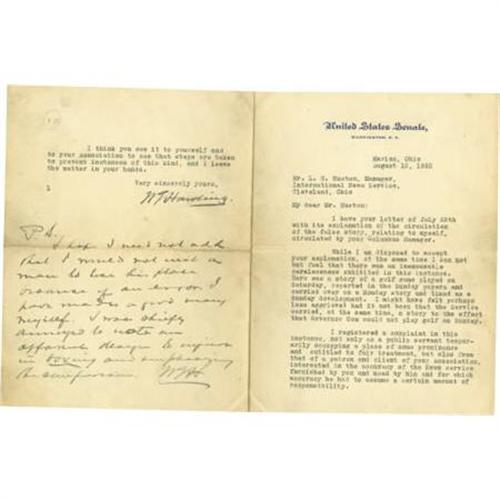 United States Senate,
WASHINGTON, D. C.
Marion, Ohio
August 12, 1920
Mr. L. S. Huston, Manager,
International News Service,
Cleveland, Ohio
My dear Mr. Huston:
I have your letter of July 28th
with its explanation of the circulation
of the false story, relating to myself,
circulated by your Columbus manager.
While I am disposed to accept
your explanation, at the same time I can not
but feel that there was an inexcusable
carelessness exhibited in this instance.
Here was a story of a golf game played on
Saturday, reported in the Sunday papers and
carried over as a Monday story and listed as a
Sunday development. I might have felt perhaps
less aggrieved had it not been that the Service
carried, at the same time, a story to the effect
that Governor Cox would not play golf on Sunday.
I registered a complaint in this
instance, not only as a public servant tempor-
arily occupying a place of some prominence
and entitled to fair treatment, but also from
that of a patron and client of your association,
interested in the accuracy of the News service
furnished by you and used by him and for which
accuracy he has to assume a certain amount of
responsibility.
I think you owe it to yourself and
to your association to see that steps are taken
to prevent instances of this kind, and I leave
the matter in your hands.
Very sincerely yours,
W G Harding
P.S.
I hope I need not add
that I would not wish a
man to lose his place
because of an error. I
have made a good many
myself. I was chiefly
annoyed to note an
offensive design to injure
in and emphasizing
the comparison. WGH